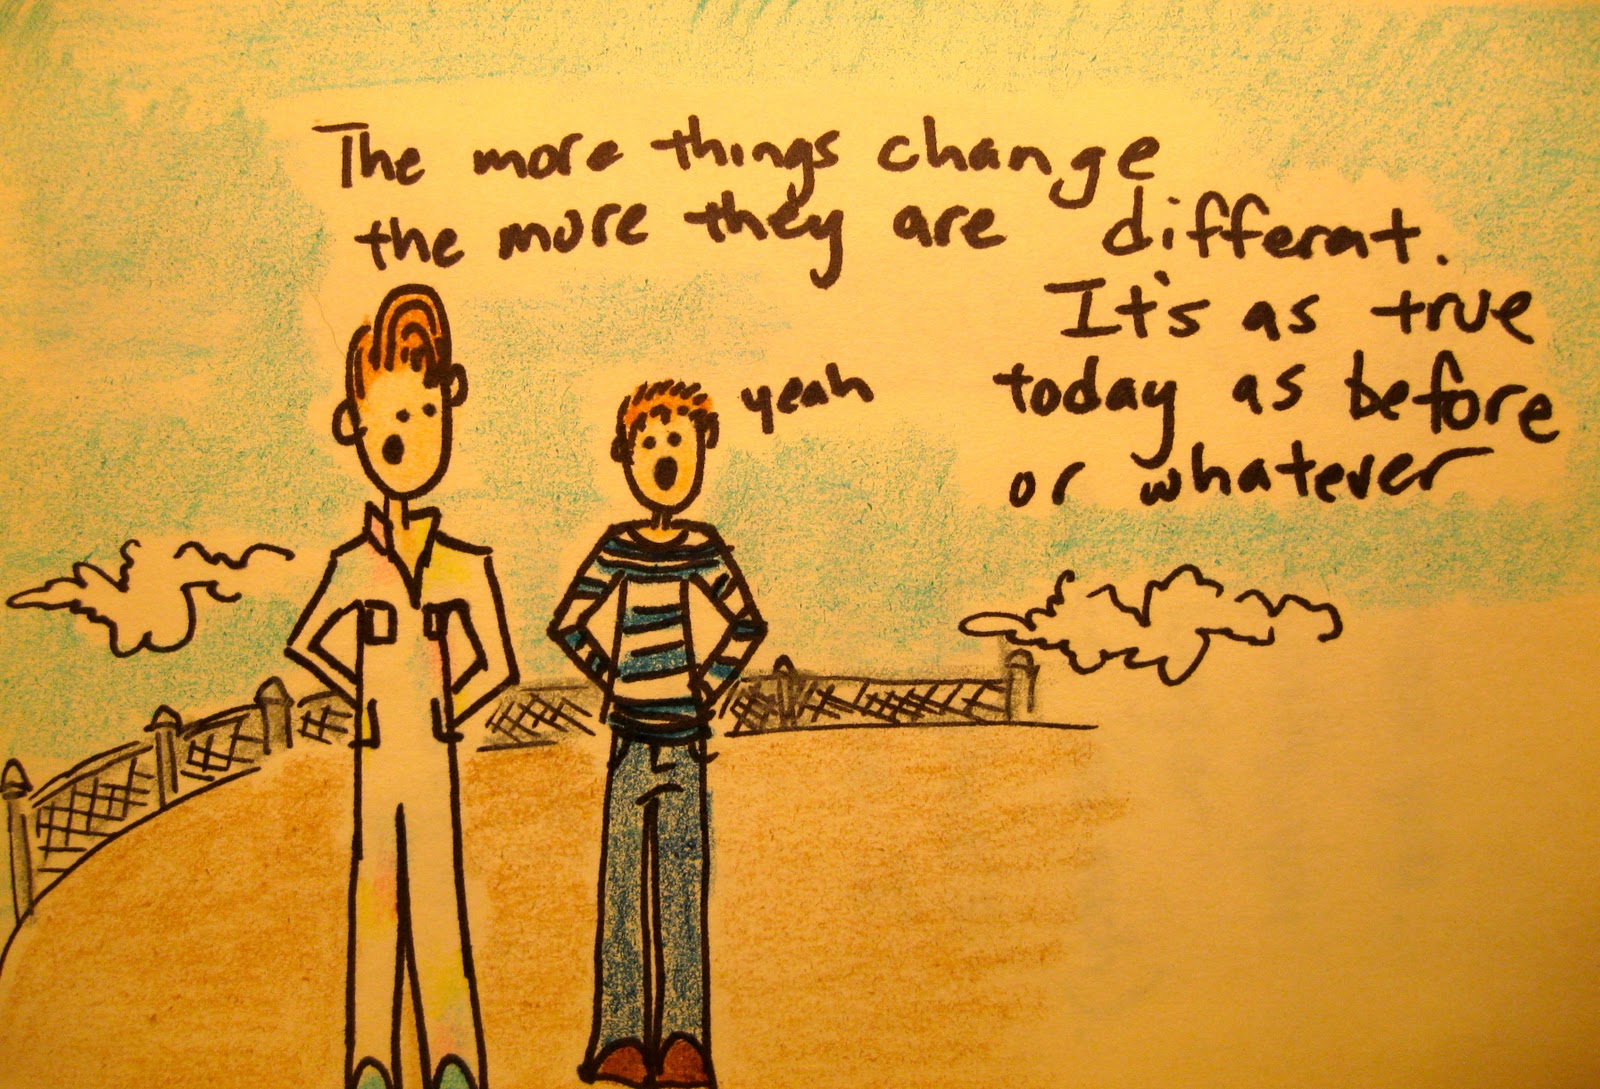 The more things change
the more they are differat.
It's as true
today as before
or whatever
yeah